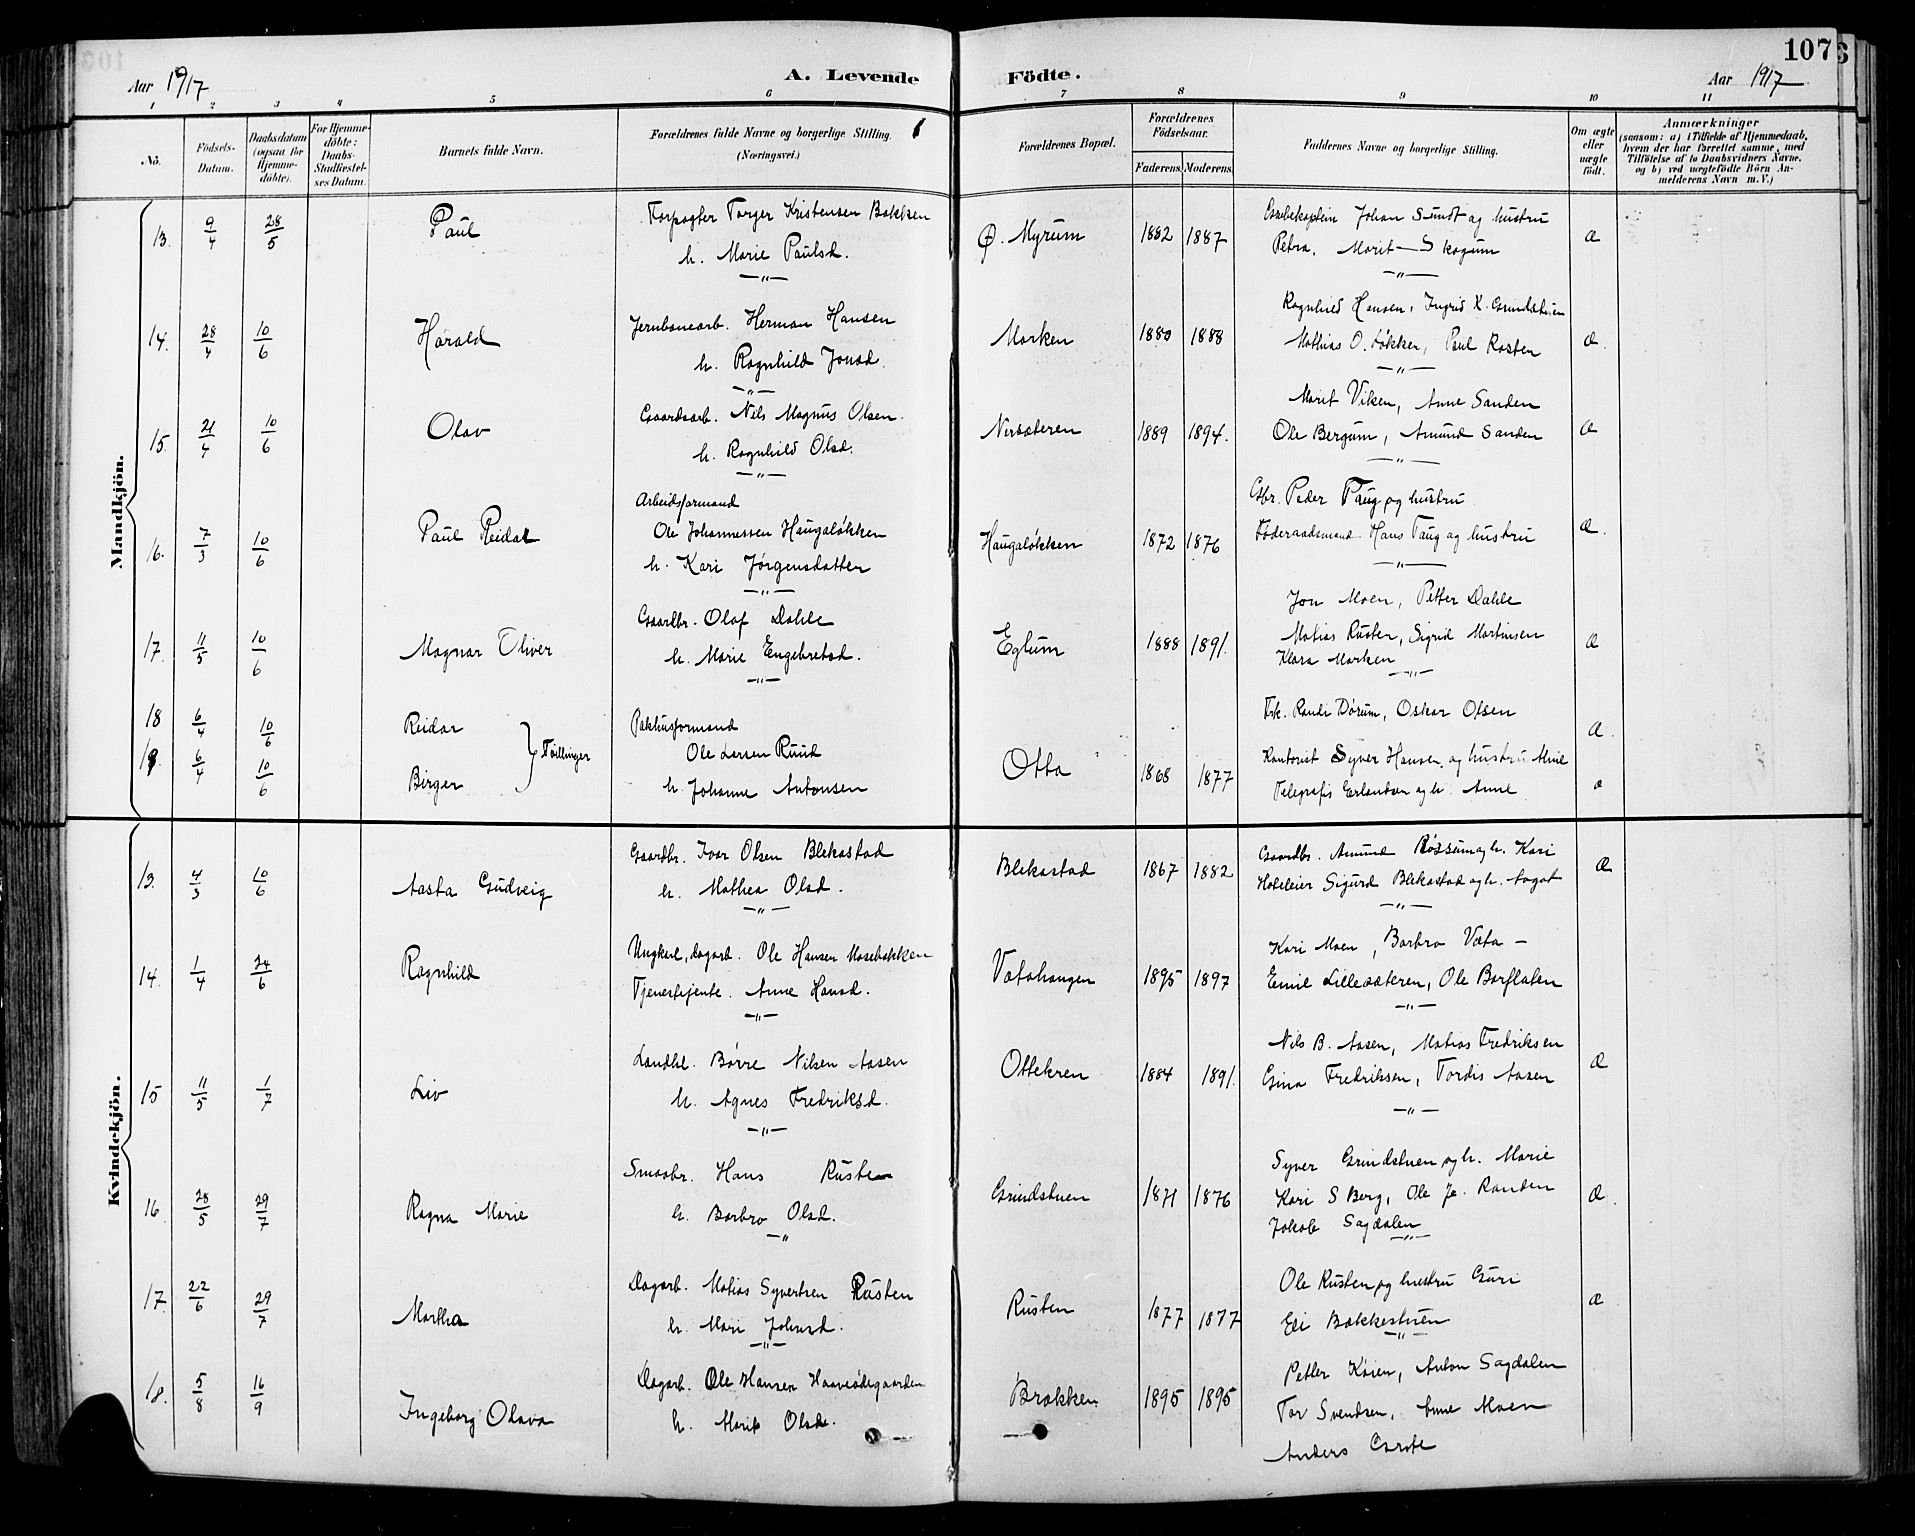 107
Aar 1917
A. Levende Födte.
Aar 1917
1 2 3 4 5 6 7 8 9 10 11
No.
Födsels-Datum.
Daabsdatum (ogsaa for Hjemme-döbte).
For Hjemme-döbte: Daabs-Stadfæstel-ses Datum.
Barnets fulde Navn.
Forældrenes fulde Navne og borgerlige Stilling. (Næringsvei.)
Forældrenes Bopæl.
Forældrenes Födselsaar.
Faderens. Moderens.
Faddernes Navne og borgerlige Stilling.
Om ægte eller uægte födt.
Anmærkninger
(saasom: a) i Tilfælde af Hjemmedaab,
hvem der har forrettet samme, med
Tilföielse af to Daabsvidners Navne.
og b) ved uægtefödte Börn An-
melderens Navn m. V.)
Mandkjön.
13. 9/4 28/5 Paul
Forpagter Torger Kristensen Bakken
h. Marie Paulsd.
Ø. Myrum 1882 1887
Johan Sundt og hustru
Petra, Marit Skogum
Æ
14. 28/4 10/6 Harald
Jernbanearb. Herman Hansen
h. Ragnhild Jonsd.
Morken 1880 1888
Ragnhild Hansen, Ingrid K. Grindstuen
Mathias O. Løkken, Paul Rosten
Æ
15. 21/4 10/6 Olav
Gaardsarb. Nils Magnus Olsen.
h. Ragnhild Olsd.
Nersæteren 1889 1894.
Marit Viken, Anne Sanden
Ole Bergum, Amund Sanden
Æ
16. 7/3 10/6 Paul Reidar
Arbeidsformand
Ole Johannessen Haugaløkken
h. Kari Jørgensdatter
Haugaløkken 1872 1876
Gbr. Peder Taug og hustru
Føderaadsmand Hans Taug og hustru
Æ.
17. 11/5 10/6 Magnar Oliver
Gaardbr. Olaf Dahle
h. Marie Engebretsd.
Eglum 1888 1891.
Jon Moen, Petter Dahle
Matias Rusten, Sigrid Martinsen
Klara Morken
Æ
18 6/4 10/6 Reidar
19. 6/4 10/6 Birger
} Tvillinger
Pakhusformand
Ole Larsen Ruud
h. Johanne Antonsen
Otta 1868 1877
Frk. Randi Dørum, Oskar Olsen
Kontorist Syver Hansen og hustru Mine
Telegrafis Erlandsen og h. Anne
Æ.
Æ
Kvindekjön.
13. 4/3 10/6 Aasta Gudveig
Gaardbr. Ivar Olsen Blekastad
h. Mathea Olsd.
Blekastad 1867 1882
Gaardbr. Amund Røssum og h. Kari
Hoteleier Sigurd Blekastad og h. Aagot
Æ
14. 1/4 24/6 Ragnhild
Ungkarl, dagarb. Ole Hansen Mosebakken
Tjenestejente. Anne Hansd.
Vatahaugen 1895 1897
Kari Moen, Barbro Vata
Emil Lillesæteren, Ole Borflaten
15 11/5 1/7 Liv
Landhl. Børre Nilsen Aasen
h. Agnes Fredriksd.
Ottekren 1884 1891.
Nils B. Aasen, Matias Fredriksen
Gina Fredriksen, Tordis Aasen
Æ
16. 28/5 29/7 Ragna Marie
Smaabr. Hans Rusten
h. Barbro Olsd.
Grindstuen 1871 1876
Syver Grindstuen og h. Marie
Kari S Berg, Ole Jo. Randen
Jakob Sagdalen
Æ.
17. 22/6 29/7 Martha
Dagarb. Matias Syvertsen Rusten
h. Mari Johnsd.
Rusten 1877 1877
Ole Rusten og hustru Guri
Eli Bakkestuen
Æ
18. 5/8 16/9 Ingeborg Olava
Dagarb. Ole Hansen Haaveødegaarden
h. Marit Olsd.
Brækken 1895 1895
Petter Køien, Anton Sagdalen
Tor Svendsen, Anne Moen
Anders Grote